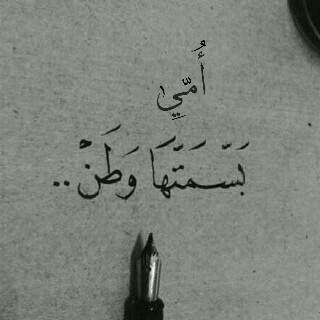 أُمّي
بَسّمَتّهَا وَطَنْ..